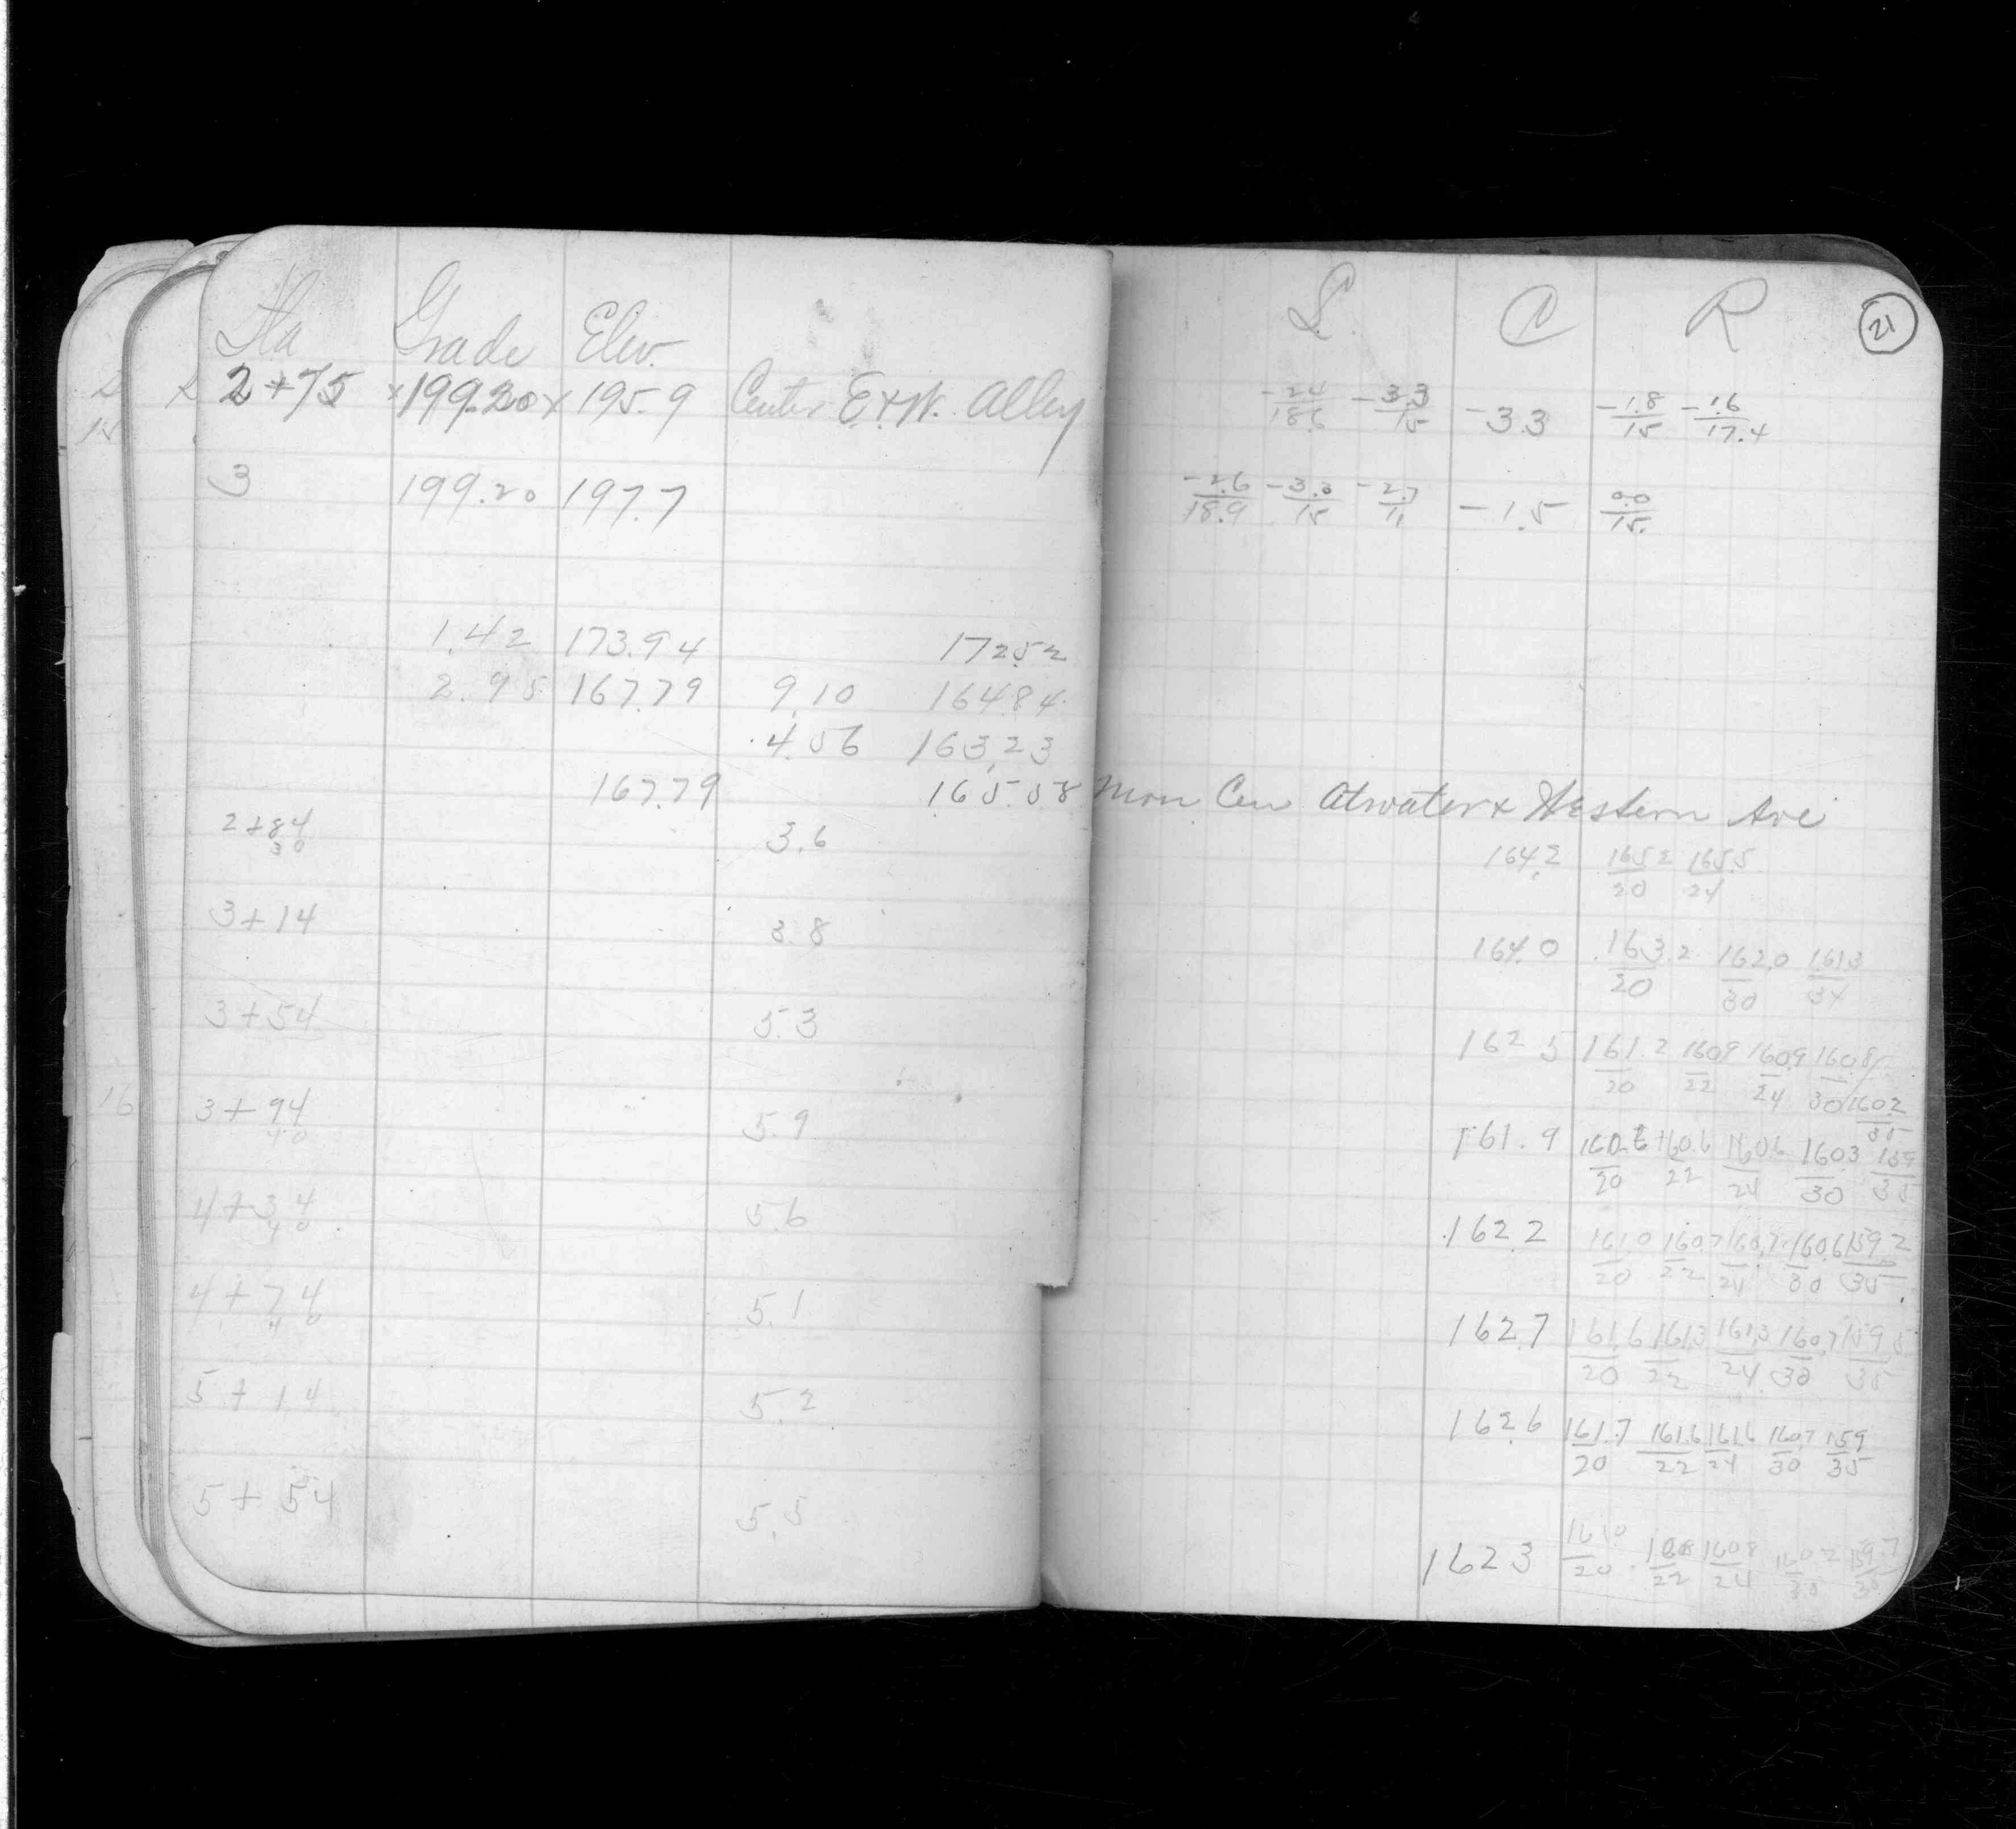 Sta Grade Elev. L. C R 21
2+75 x199.20x 195.9 Center E+W. Alley -2.4/18.6 -3.3/15 -3.3 -1.8/15 -1.6/17.4
3 199.20 197.7 -2.6/18.9 -3.3/15 -2.7/11 -1.5 0.0/15.
1.42 173.94 172.52
2.95 167.79 9.10 164.84
4.56 163.23
167.79 165.58 Mon Cen Atwater & Western Ave
2+84 3.6 164.2 165.2/20 165.5/24
30
3+14 3.8 164.0 163.2/20 162.0/30 161.3/34
3+54 5.3 162.5 161.2/20 160.9/22 160.9/24 160.8/30 160.2/35
16 3+94 5.9 161.9 160.6/20 160.6/22 160.6/24 160.3/30 159/35
40
4+34 5.6 162.2 161.0/20 160.7/22 160.7/24 160.6/30 159.2/35
40
4+74 5.1 162.7 161.6/20 161.3/22 161.3/24 160.7/30 159.5/35
40
5+14 5.2 162.6 161.7/20 161.6/22 161.6/24 160.7/30 159/35
5+54 5.5 162.3 161.0/20 160.8/22 160.8/24 160.2/30 159.7/35